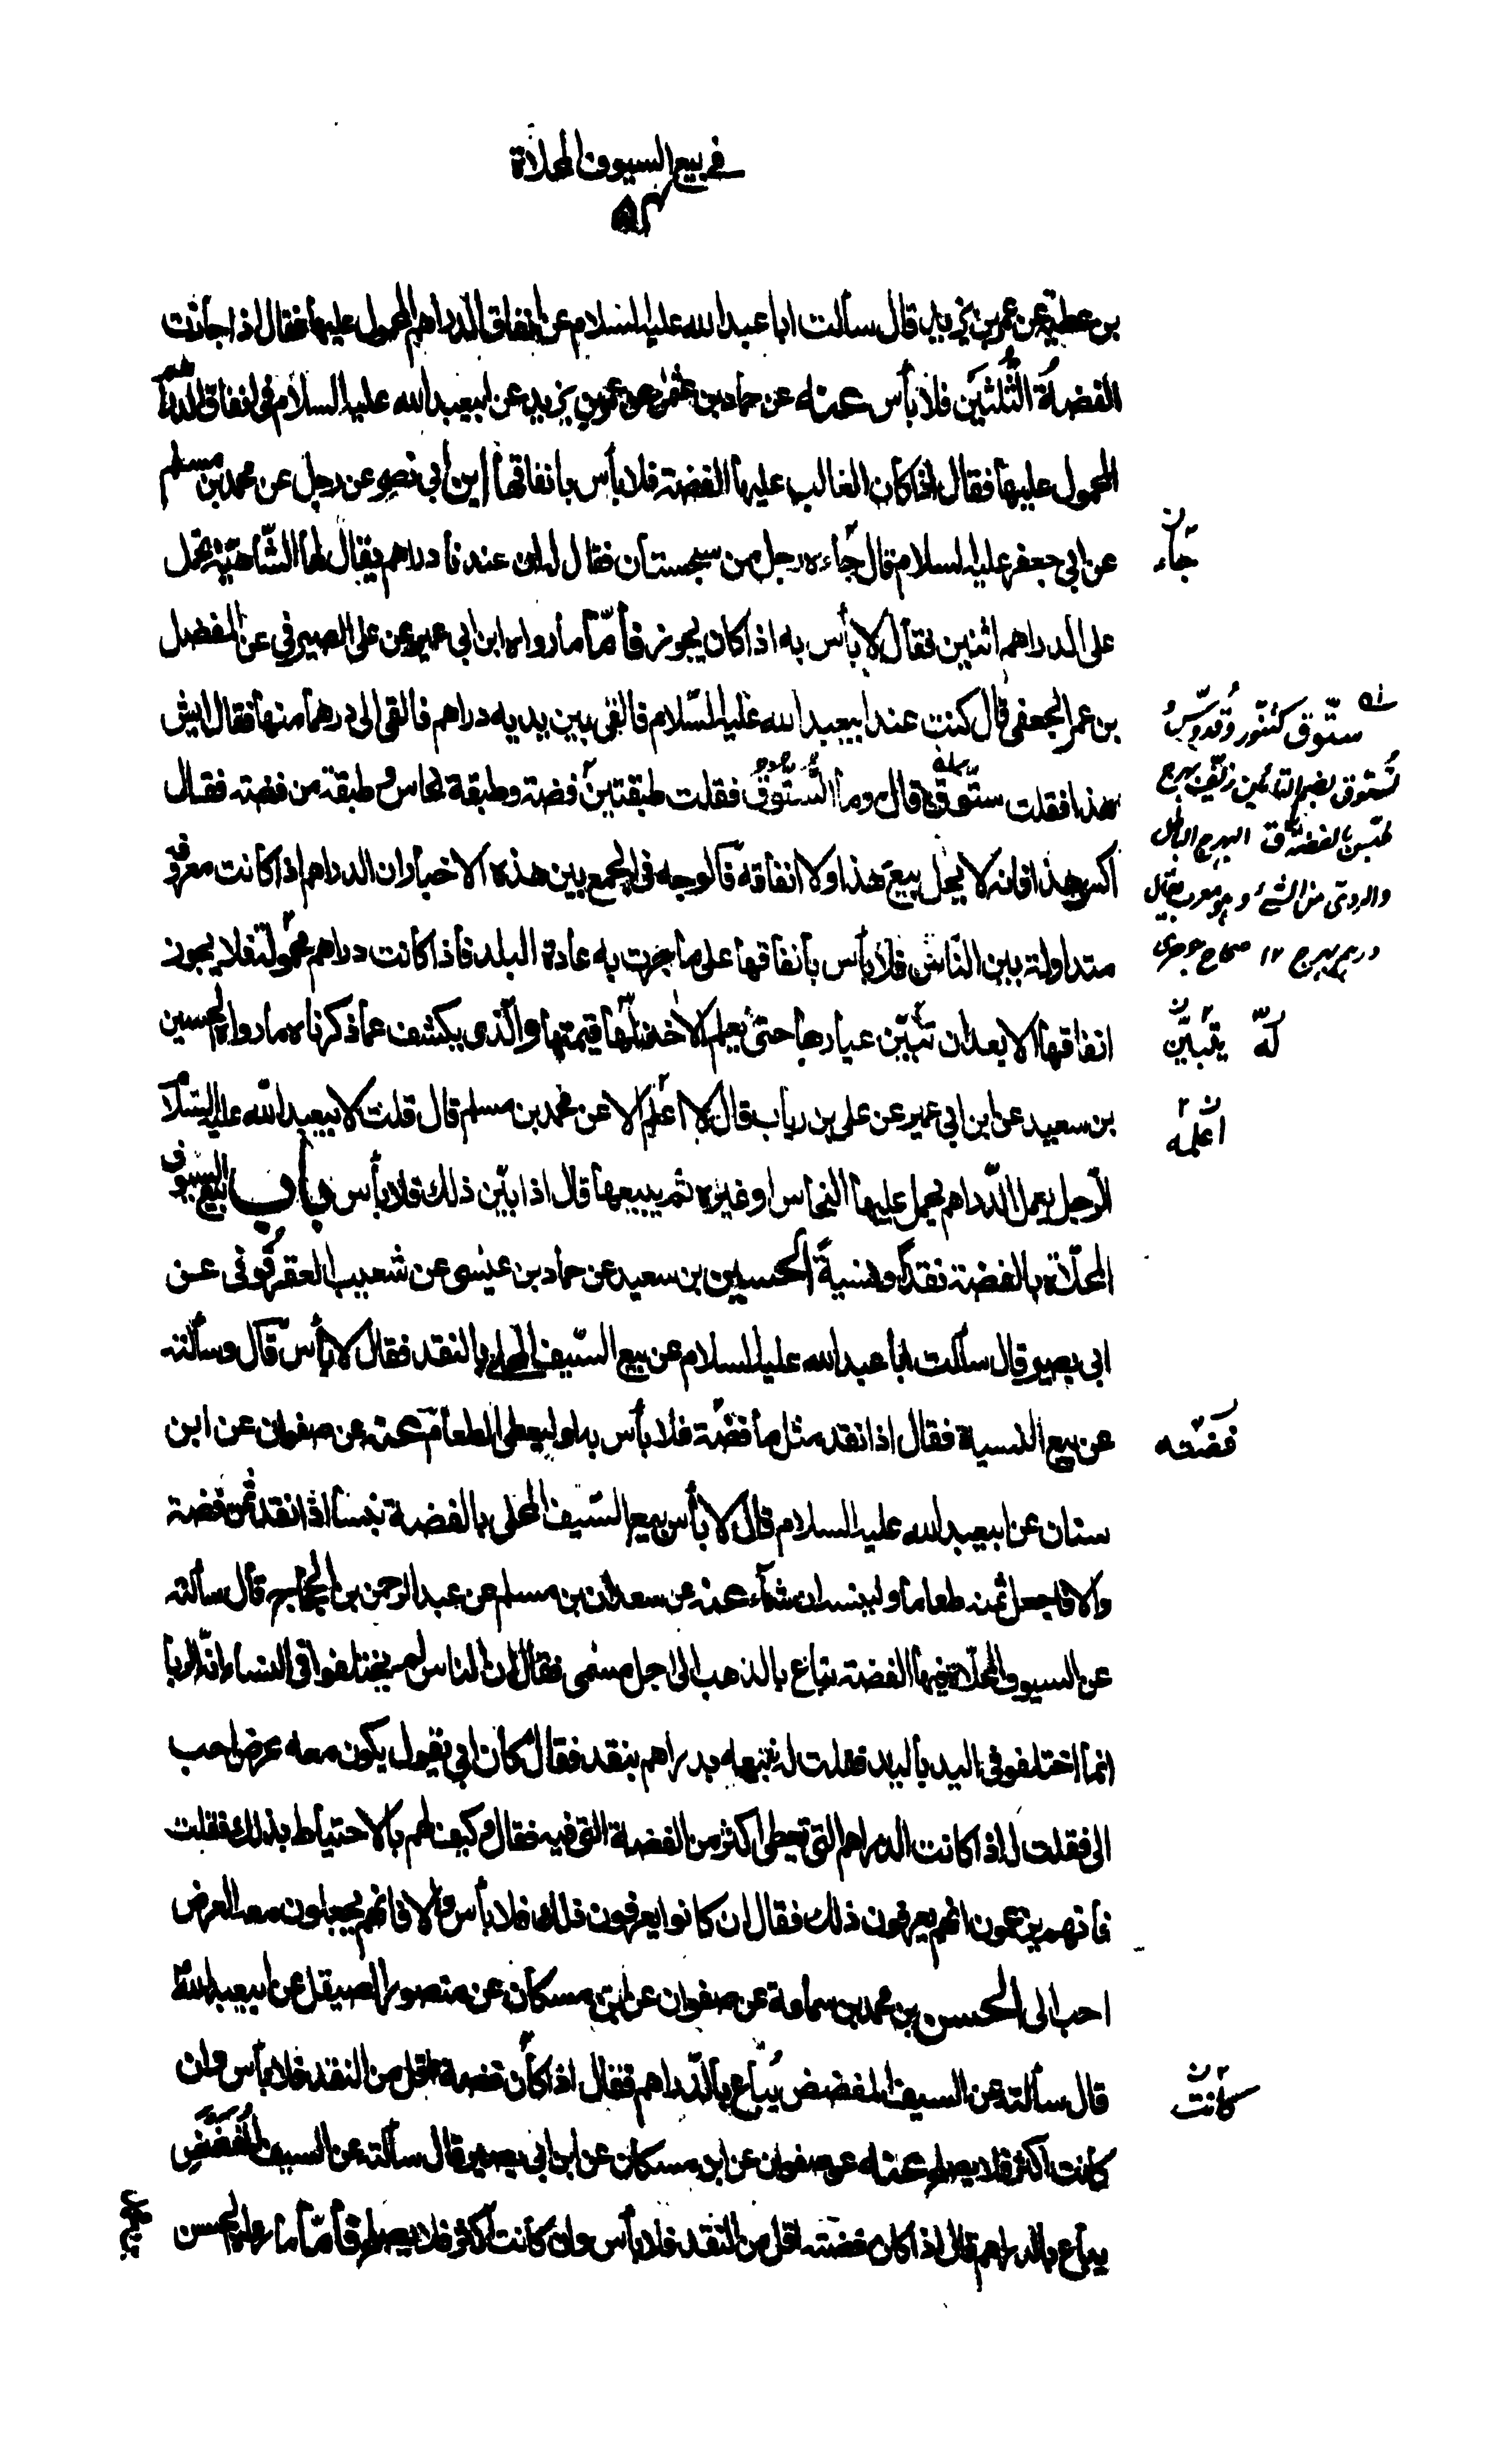 في بيع السيوف المحلاة
بن عطية عن عمر بن يزيد قال سألت ابا عبد الله عليه السلام عن انفاق الدراهم المحمول عليها فقال اذا جازت
الفضة الثلثين فلا بأس عنه عن حماد بن عثمن عن عمر بن يزيد عن ابيعبد الله عليه السلام في انفاق الدراهم
المحمول عليها فقال اذا كان الغالب عليها الفضة فلا بأس بانفاقها ابن أبي نصر عن رجل عن محمد بن مسلم
عن ابي جعفر عليه السلام قال جاءه رجل من سجستان فقال له ان عندنا دراهم يقال لها الشاهية تحمل
جاء ن
على الدراهم اثنين فقال لا بأس به اذا كان يجوز فأمّا ما رواه ابن ابي عمير عن علي الصيرفي عن المفضل
بن عمر الجعفي قال كنت عند ابيعبد الله عليه السلام فالقى بين يديه دراهم فالقى الي درهما منها فقال ايش
هذا فقلت ستّوق قال وما السّتّوق فقلت طبقتين فضة وطبقة نحاس وطبقة من فضة فقال
اكسر هذا فانه لا يحل بيع هذا ولا انفاقه فالوجه في الجمع بين هذه الاخبار ان الدراهم اذا كانت معروفة
متداولة بين النّاس فلا بأس بانفاقها على ما جرت به عادة البلد فاذا كانت دراهم مجهولة فلا يجوز
ستّوق كتنّور وقدّوس
تستوق بضم التائين زيف بهرج
ملبس بالفضة ق البهرج الباطل
والردى من الشئ وهو معرب يقال
درهم بهرج ١٢ صحاح جوهرى
انفاقها الا بعد ان تبيّن عيارها حتى يعلم الاخذ لها قيمتها والّذي يكشف عما ذكرناه ما رواه الحسين
له يتبيّن ن
بن سعيد عن ابن ابي عمير عن علي بن رياب قال لا اعلم الا عن محمد بن مسلم قال قلت لابيعبد الله عليه السلام
اعلمه ن
الرّجل يعمل الدّراهم يحمل عليها النحاس او غيره ثم يبيعها قال اذا بيّن ذلك فلا بأس باب بيع السيوف
المحلّاة بالفضة نقدًا ونسيةً الحسين بن سعيد عن حماد بن عيسى عن شعيب العقرقوفى عن
ابي بصير قال سألت ابا عبد الله عليه السلام عن بيع السّيف المحلى بالنقد فقال لا بأس قال وسألته
عن بيع النسية فقال اذا نقد مثل ما فضة فلا بأس به او ليعطي الطعام عنه عن صفوان عن ابن
فضّته
سنان عن ابيعبد الله عليه السلام قال لا بأس ببيع السّيف المحلى بالفضة بنسأ اذا نقد ثمن فضة
والا فاجعل ثمنه طعاما ولينسه ان شاء عنه عن سعدان بن مسلم عن عبد الرحمن بن الحجاج قال سألته
عن السيوف المحلّاة فيها الفضة تباع بالذهب الى اجل مسمى فقال ان الناس لم يختلفوا في النسأ انّه الربا
انما اختلفو في اليد باليد فقلت له نبيعه بدراهم بنقد فقال كان ابي يقول يكون معه عرض احب
الي فقلت له اذا كانت الدراهم التي تعطى اكثر من الفضة التي فيه فقال وكيف لهم بالاحتياط بذلك فقلت
فانهم يزعمون انهم يعرفون ذلك فقال ان كانوا يعرفون ذلك فلا بأس والا فانهم يجعلون معه العرض
احب الي الحسن بن محمد بن سماعة عن صفوان عن ابن مسكان عن منصور الصيقل عن ابيعبد الله
قال سألته عن السيف المفضض يُباع بالدّراهم فقال اذا كان فضة اقل من النقد فلا بأس وان
كانت ن
كانت اكثر فلا يصلح عنه عن صفوان عن ابن مسكان عن ابي بصير قال سألته عن السيف المُفَضَّضِ
يباع بالدراهم قال اذا كان فضته اقل من النقد فلا بأس وان كانت اكثر فلا يصلح فأمّا ما رواه الحسن